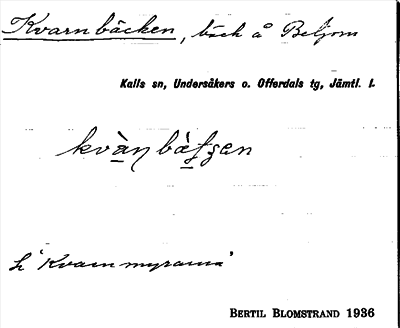 Kvarnbäcken, bäck å Beljom
Kalls sn, Undersåkers o. Offerdals tg, Jämtl. l.
kvàn̥bä̀ʃʒen
h "Kvarnmyrarna"
BERTIL BLOMSTRAND 1936